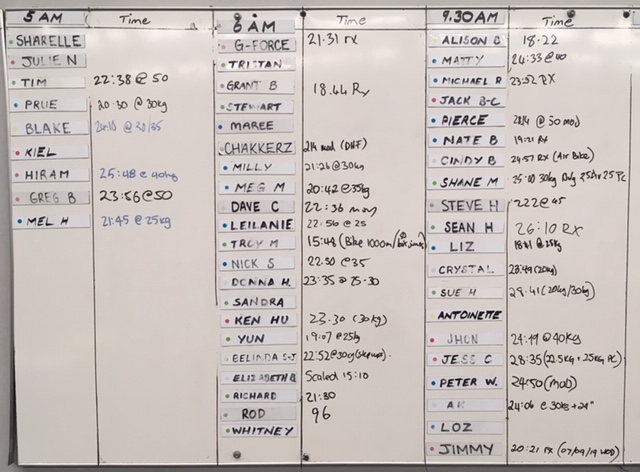 5 AM Time
SHARELLE
JULIE N
TIM 22:38 @ 50
PRUE 20:30 @ 30kg
BLAKE
KIEL
HIRAM 25:48 @ 40kg
GREG B 23:56 @ 50
MEL H 21:45 @ 25kg
6 AM Time
G-FORCE 21:31 rx
TRISTAN
GRANT B 18.44 Rx
STEWART
MAREE
CHAKKERZ 214 mod
MILLY 21:26 @ 30kg
MEG M 20:42 @ 35kg
DAVE C 22:36 mod
LEILANIE 22:56 @ 25
TROY M 15:48 (Bike 1000m/
NICK S 22.50 @ 35
DONNA H. 23:35 @ 25-30
SANDRA
KEN HU 23.30 (30kg)
YUN 19:07 @ 25kg
BELINDA S-J 22:52 @ 30kg (step ups).
ELIZABETH B Scaled 15:10
RICHARD 21:30
ROD 96
WHITNEY
9.30AM Time
ALISON C 18-22
MATTY 24:33 @ 40
MICHAEL R 23:52 RX
JACK B-C
PIERCE @ 50 mod
NATE B 19:21 Rx
CINDY B 24:57 RX (Air Bike)
SHANE M 25:10 30kg
STEVE H 222 @ 45
SEAN H 26:10 RX
LIZ @ 25kg
CRYSTAL 28:49 (20kg)
SUE H 29.41 (20kg/30kg)
ANTOINETTE
JHON 24:49 @ 40KG
JESS C 28:35 (22.5KG + 25KG PC)
PETER W. 24:50 (mod)
AK 24:06 @ 30kg + 24"
LOZ
JIMMY 20:21 rx (07/09/19 WOD)